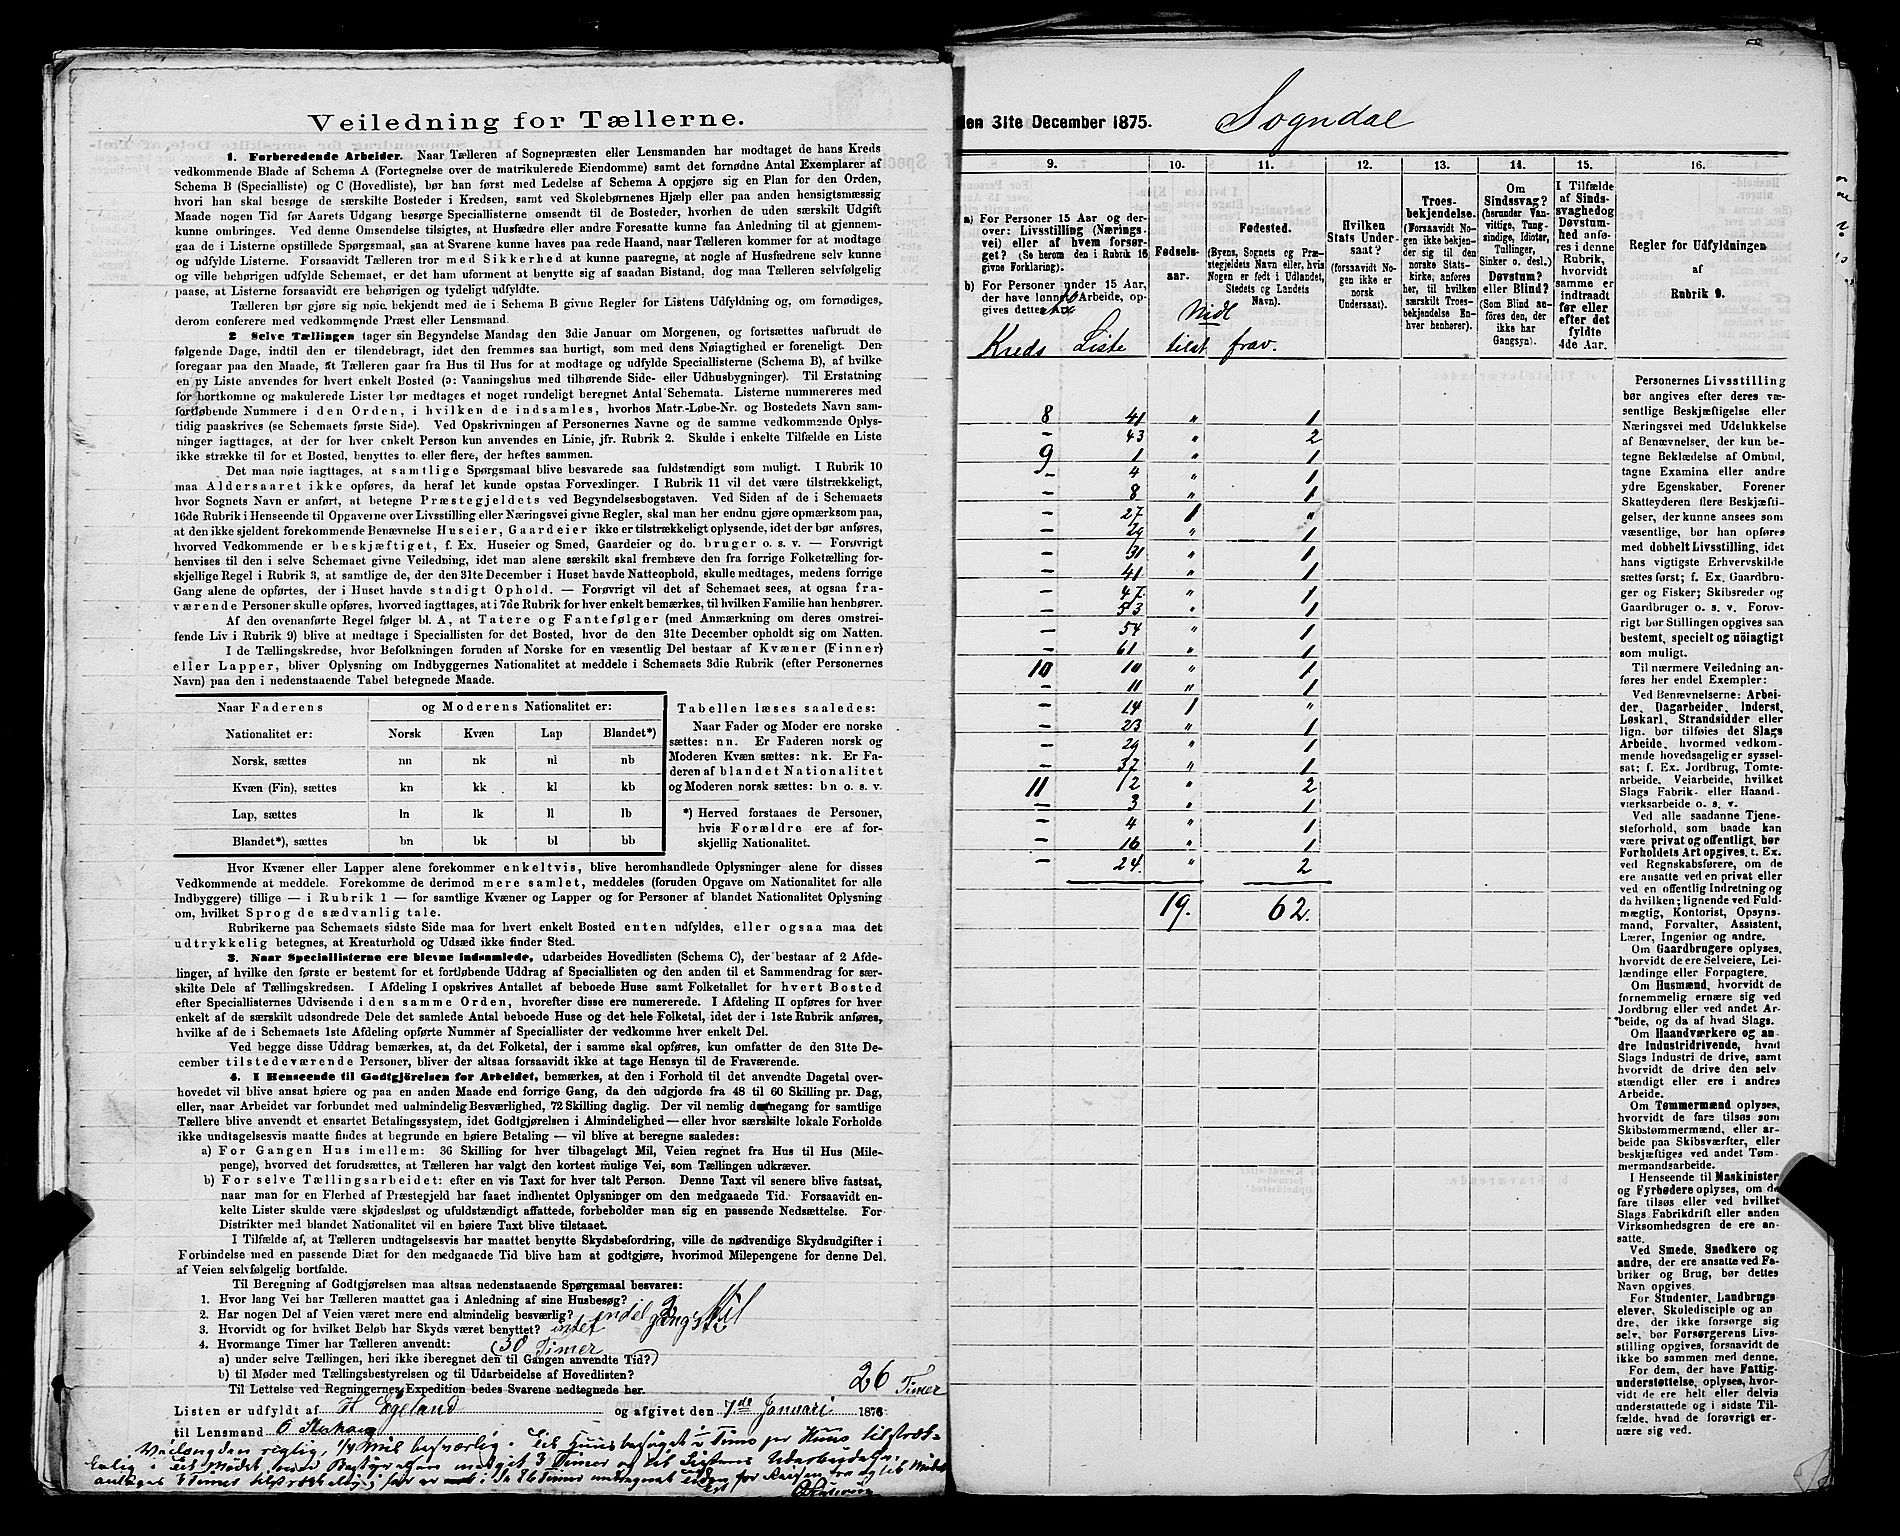 Veiledning for Tællerne.
1. Forberedende Arbeider. Naar Tælleren af Sognepræsten eller Lensmanden har modtaget de hans Kreds
vedkommende Blade af Schema A (Fortegnelse over de matrikulerede Eiendomme) samt det fornødne Antal Exemplarer af
Schema B (Specialliste) og C (Hovedliste), bør han først med Ledelse af Schema A opgjøre sig en Plan for den Orden,
hvori han skal besøge de særskilte Bosteder i Kredsen, samt ved Skolebørnenes Hjælp eller paa anden hensigtsmæssig
Maade nogen Tid før Aarets Udgang besørge Speciallisterne omsendt til de Bosteder, hvorhen de uden særskilt Udgift
kunne ombringes. Ved denne Omsendelse tilsigtes, at Husfædre eller andre Foresatte kunne faa Anledning til at gjennem-
gaa de i Listerne opstillede Spørgsmaal, saa at Svarene kunne haves paa rede Haand, naar Tælleren kommer for at modtage
og udfylde Listerne. Forsaavidt Tælleren tror med Sikkerhed at kunne paaregne, at nogle af Husfædrene selv kunne
og ville behørigen udfylde Schemaet, er det ham uforment at benytte sig af saadan Bistand, dog maa Tælleren selvfølgelig
paase, at Listerne forsaavidt ere behørigen og tydeligt udfyldte.
Tælleren bør gjøre sig nøie bekjendt med de i Schema B givne Regler for Listens Udfyldning og, om fornødiges,
derom conferere med vedkommende Præst eller Lensmand.
2 Selve Tællingen tager sin Begyndelse Mandag den 3die Januar om Morgenen, og fortsættes uafbrudt de
følgende Dage, indtil den er tilendebragt, idet den fremmes saa hurtigt, som med dens Nøiagtighed er foreneligt. Den
foregaar paa den Maade, at Tælleren gaar fra Hus til Hus for at modtage og udfylde Speciallisterne (Schema B), af hvilke
en ny Liste anvendes for hvert enkelt Bosted (ɔ: Vaaningshus med tilhørende Side- eller Udhusbygninger). Til Erstatning
for bortkomne og makulerede Lister bør medtages et noget rundeligt beregnet Antal Schemata. Listerne nummereres med
fortløbende Nummere i den Orden, i hvilken de indsamles, hvorhos Matr.-Løbe-Nr. og Bostedets Navn sam-
tidig paaskrives (se Schemaets første Side). Ved Opskrivningen af Personernes Navne og de samme vedkommende Oplys-
ninger iagttages, at der for hver enkelt Person kun anvendes en Linie, jfr. Rubrik 2. Skulde i enkelte Tilfælde en Liste
ikke strække til for et Bosted, benyttes to eller flere, der heftes sammen.
Det maa nøie iagttages, at samtlige Spørgsmaal blive besvarede saa fuldstændigt som muligt. I Rubrik 10
maa Aldersaaret ikke opgives, da heraf let kunde opstaa Forvexlinger. I Rubrik 11 vil det være tilstrækkeligt,
hvor Sognets Navn er anført, at betegne Præstegjeldets ved Begyndelsesbogstaven. Ved Siden af de i Schemaets
16de Rubrik i Henseende til Opgaverne over Livsstilling eller Næringsvei givne Regler, skal man her endnu gjøre opmærksom paa,
at den ikke sjeldent forekommende Benævnelse Huseier, Gaardeier ikke er tilstrækkeligt oplysende, idet der bør anføres,
hvorved Vedkommende er beskjæftiget, f. Ex. Huseier og Smed, Gaardeier og do. bruger o. s. v. — Forøvrigt
henvises til den i selve Schemaet givne Veiledning, idet man alene særskilt skal fremhæve den fra forrige Folketælling for-
skjellige Regel i Rubrik 3, at samtlige de, der den 31te December i Huset havde Natteophold, skulle medtages, medens forrige
Gang alene de opførtes, der i Huset havde stadigt Ophold. — Forøvrigt vil det af Schemaet sees, at ogsaa fra-
værende Personer skulle opføres, hvorved iagttages, at i 7de Rubrik for hver enkelt bemærkes, til hvilken Familie han henhører.
Af den ovenanførte Regel følger bl. A, at Tatere og Fantefølger (med Anmærkning om deres omstrei-
fende Liv i Rubrik 9) blive at medtage i Speciallisten for det Bosted, hvor de den 31te December opholdt sig om Natten.
I de Tællingskredse, hvor Befolkningen foruden af Norske for en væsentlig Del bestaar af Kvæner (Finner)
eller Lapper, bliver Oplysning om Indbyggernes Nationalitet at meddele i Schemaets 3die Rubrik (efter Personernes
Navn) paa den i nedenstaaende Tabel betegnede Maade.
Naar Faderens og Moderens Nationalitet er:
Nationalitet er: Norsk Kvæn Lap Blandet*)
Norsk, sættes nn nk nl nb
Kvæn (Fin), sættes kn kk kl kb
Lap, sættes ln lk ll lb
Blandet*), sættes bn bk bl bb
Tabellen læses saaledes:
Naar Fader og Moder ere norske
sættes: nn. Er Faderen norsk og
Moderen Kvæn sættes: nk. Er Fa-
deren af blandet Nationalitet
og Moderen norsk sættes: bn o. s. v.
*) Herved forstaaes de Personer,
hvis Forældre ere af for-
skjellig Nationalitet.
Hvor Kvæner eller Lapper alene forekommer enkeltvis, blive heromhandlede Oplysninger alene for disses
Vedkommende at meddele. Forekomme de derimod mere samlet, meddeles (foruden Opgave om Nationalitet for alle
Indbyggere) tillige — i Rubrik 1 — for samtlige Kvæner og Lapper og for Personer af blandet Nationalitet Oplysning
om, hvilket Sprog de sædvanlig tale.
Rubrikerne paa Schemaets sidste Side maa for hvert enkelt Bosted enten udfyldes, eller ogsaa maa det
udtrykkelig betegnes, at Kreaturhold og Udsæd ikke finder Sted.
3. Naar Speciallisterne ere blevne indsamlede, udarbeides Hovedlisten (Schema C), der bestaar af 2 Afde-
linger, af hvilke den første er bestemt for et fortløbende Uddrag af Speciallisten og den anden til et Sammendrag for sær-
skilte Dele af Tællingskredsen. I Afdeling I opskrives Antallet af beboede Huse samt Folketallet for hvert Bosted
efter Speciallisternes Udvisende i den samme Orden, hvorefter disse ere numererede. I Afdeling II opføres for hver
enkelt af de særskilt udsondrede Dele det samlede Antal beboede Huse og det hele Folketal, idet der i 1ste Rubrik anføres,
hvilke af de i Schemaets 1ste Afdeling opførte Nummer af Speciallister der vedkomme hver enkelt Del.
Ved begge disse Uddrag bemærkes, at, da det Folketal, der i samme skal opføres, kun omfatter de den 31te De-
cember tilstedeværende Personer, bliver der altsaa forsaavidt ikke at tage Hensyn til de Fraværende.
4. I Henseende til Godtgjörelsen for Arbeidet, bemærkes, at den i Forhold til det anvendte Dagetal over-
hovedet vil blive ansat høiere og paa en anden Maade end forrige Gang, da den udgjorde fra 48 til 60 Skilling pr. Dag,
eller, naar Arbeidet var forbundet med ualmindelig Besværlighed, 72 Skilling daglig. Der vil nemlig dennegang for samtlige
Tællere blive anvendt et ensartet Betalingssystem, idet Godtgjørelsen i Almindelighed — eller hvor særskilte lokale Forholde
ikke undtagelsesvis maatte findes at begrunde en høiere Betaling — vil blive at beregne saaledes:
a) For Gangen Hus imellem: 36 Skilling for hver tilbagelagt Mil, Veien regnet fra Hus til Hus (Mile-
penge), hvorved det forudsættes, at Tælleren har valgt den kortest mulige Vei, som Tællingen udkræver.
b) For selve Tællingsarbeidet: efter en vis Taxt for hver talt Person. Denne Taxt vil senere blive fastsat,
naar man for en Flerhed af Præstegjeld har faaet indhentet Oplysninger om den medgaaede Tid. Forsaavidt en-
kelte Lister skulde være skjødesløst og ufuldstændigt affattede, forbeholder man sig en passende Nedsættelse. For
Distrikter med blandet Nationalitet vil en høiere Taxt blive tilstaaet.
I Tilfælde af, at Tælleren undtagelsesvis har maattet benytte Skydsbefordring, ville de nødvendige Skydsudgifter i
Forbindelse med en passende Diæt for den medgaaede Tid blive ham at godtgjøre, hvorimod Milepengene for denne Del
af Veien selvfølgelig bortfalde.
Til Beregning af Godtgjørelsen maa altsaa nedenstaaende Spørgsmaal besvares:
1. Hvor lang Vei har Tælleren maattet gaa i Anledning af sine Husbesøg? Mil
2. Har nogen Del af Veien været mere end almindelig besværlig?
3. Hvorvidt og for hvilket Beløb har Skyds været benyttet? intet
4. Hvormange Timer har Tælleren anvendt: 30 Timer
a) under selve Tællingen, heri ikke iberegnet den til Gangen anvendte Tid?
b) til Møder med Tællingsbestyrelsen og til Udarbeidelse af Hovedlisten? 26 Timer
Til Lettelse ved Regningernes Expedition bedes Svarene nedtegnede her.
Listen er udfyldt af H Egeland og afgivet den 7de Januari 1876
til Lensmand
Veilængden rigtig, 1/4 Mil besværlig.
den 31te December 1875. Sogndal
9. 10. 11. 12. 13. 14. 15. 16.
a) For Personer 15 Aar og der-
over: Livsstilling (Nærings-
vei) eller af hvem forsør-
get? (Se herom den i Rubrik 16
givne Forklaring).
b) For Personer under 15 Aar,
der have lønnet Arbeide, op-
gives dette.
Fødsels-
aar.
Fødested.
(Byens, Sognets og Præ-
stegjeldets Navn eller, hvis
Nogen er født i Udlandet,
Stedets og Landets
Navn).
Hvilken
Stats Under-
saat?
(forsaavidt No-
gen ikke er
norsk
Undersaat).
Troes-
bekjendelse.
(Forsaavidt No-
gen ikke bekjen-
der sig til den
norske Stats-
kirke, anføres
her, til hvilken
særskilt Troes-
bekjendelse En-
hver henhører).
Om
Sindssvag?
(herunder Van-
vittige, Tung-
sindige, Idioter,
Tullinger,
Sinker o. desl.)
Døvstum?
eller Blind?
(Som Blind an-
føres den, der
ikke har
Gangsyn).
I Tilfælde
af Sinds-
svaghed og
Døvstum-
hed anfø-
res i denne
Rubrik,
hvorvidt
samme er
indtraadt
før eller
efter det
fyldte
4de Aar.
Regler for Udfyldningen
af
Rubrik 9.
Midl
Kreds Liste tilst frav.
8 41 " 1
– 43 " 2
9 1 " 1
– 4 " 1
– 8 " 1
– 27 1 "
– 29 " 1
– 31 " 1
– 41 " 1
– 47 " 1
– 53 " 1
– 54 " 1
– 61 " 1
10 10 " 1
– 11 " 1
– 14 1 "
– 23 " 1
– 29 " 1
– 37 " 1
11 2 " 2
– 3 " 1
– 4 " 1
– 16 " 1
– 24. " 2
19. 62.
Personernes Livsstilling
bør angives efter deres væ-
sentlige Beskjæftigelse eller
Næringsvei med Udelukkelse
af Benævnelser, der kun be-
tegne Beklædelse af Ombud,
tagne Examina eller andre
ydre Egenskaber. Forener
Skatteyderen flere Beskjæfti-
gelser, der kunne ansees som
væsentlige, bør han opføres
med dobbelt Livsstilling, idet
hans vigtigste Erhvervskilde
sættes først; f. Ex. Gaardbru-
ger og Fisker; Skibsreder og
Gaardbruger o. s. v. Forøv-
rigt bør Stillingen opgives saa
bestemt, specielt og nöiagtigt
som muligt.
Til nærmere Veiledning an-
føres her endel Exempler:
Ved Benævnelserne: Arbei-
der, Dagarbeider, Inderst,
Løskarl, Strandsidder eller
lign. bør tilføies det Slags
Arbeide, hvormed vedkom-
mende hovedsagelig er syssel-
sat; f. Ex. Jordbrug, Tomte-
arbeide, Veiarbeide, hvilket
Slags Fabrik- eller Haand-
værksarbeide o. s. v.
Ved alle saadanne Tjene-
steforhold, som baade kan
være privat og offentligt, bør
Forholdets Art opgives. t. Ex.
ved Regnskabsførere, om de
ere ansatte ved en privat eller
ved en offentlig Indretning og
da hvilken; lignende ved Fuld-
mægtig, Kontorist, Opsyns-
mand, Forvalter, Assistent,
Lærer, Ingeniør og andre.
Om Gaardbrugere oplyses,
hvorvidt de ere Selveiere, Lei-
lændinge eller Forpagtere.
Om Husmænd, hvorvidt de
fornemmelig ernære sig ved
Jordbrug eller ved andet Ar-
beide, og da af hvad Slags.
Om Haandværkere og an-
dre Industridrivende, hvad
Slags Industri de drive, samt
hvorvidt de drive den selv-
stændigt eller ere i andres
Arbeide.
Om Tømmermænd oplyses,
hvorvidt de fare tilsøs som
Skibstømmermænd, eller ar-
beide paa Skibsværfter, eller
beskjæftiges ved andet Tøm-
mermandsarbeide.
I Henseende til Maskinister
og Fyrbødere oplyses, om de
fare tilsøs eller ved hvilket
Slags Fabrikdrift eller anden
Virksomhedsgren de ere an-
satte.
Ved Smede, Snedkere og
andre, der ere ansatte ved Fa-
briker og Brug, bør dettes
Navn opgives.
For Studenter, Landbrugs-
elever, Skoledisciple og an-
dre, der ikke forsørge sig
selv, bør Forsørgerens Livs-
stilling opgives, forsaavidt de
ikke bo sammen med denne.
For dem, der have Fattig-
understøttelse, oplyses, hvor-
vidt de ere helt eller delvis
understøttede og i sidste Til-
fælde, hvad de forøvrigt er-
nære sig ved.